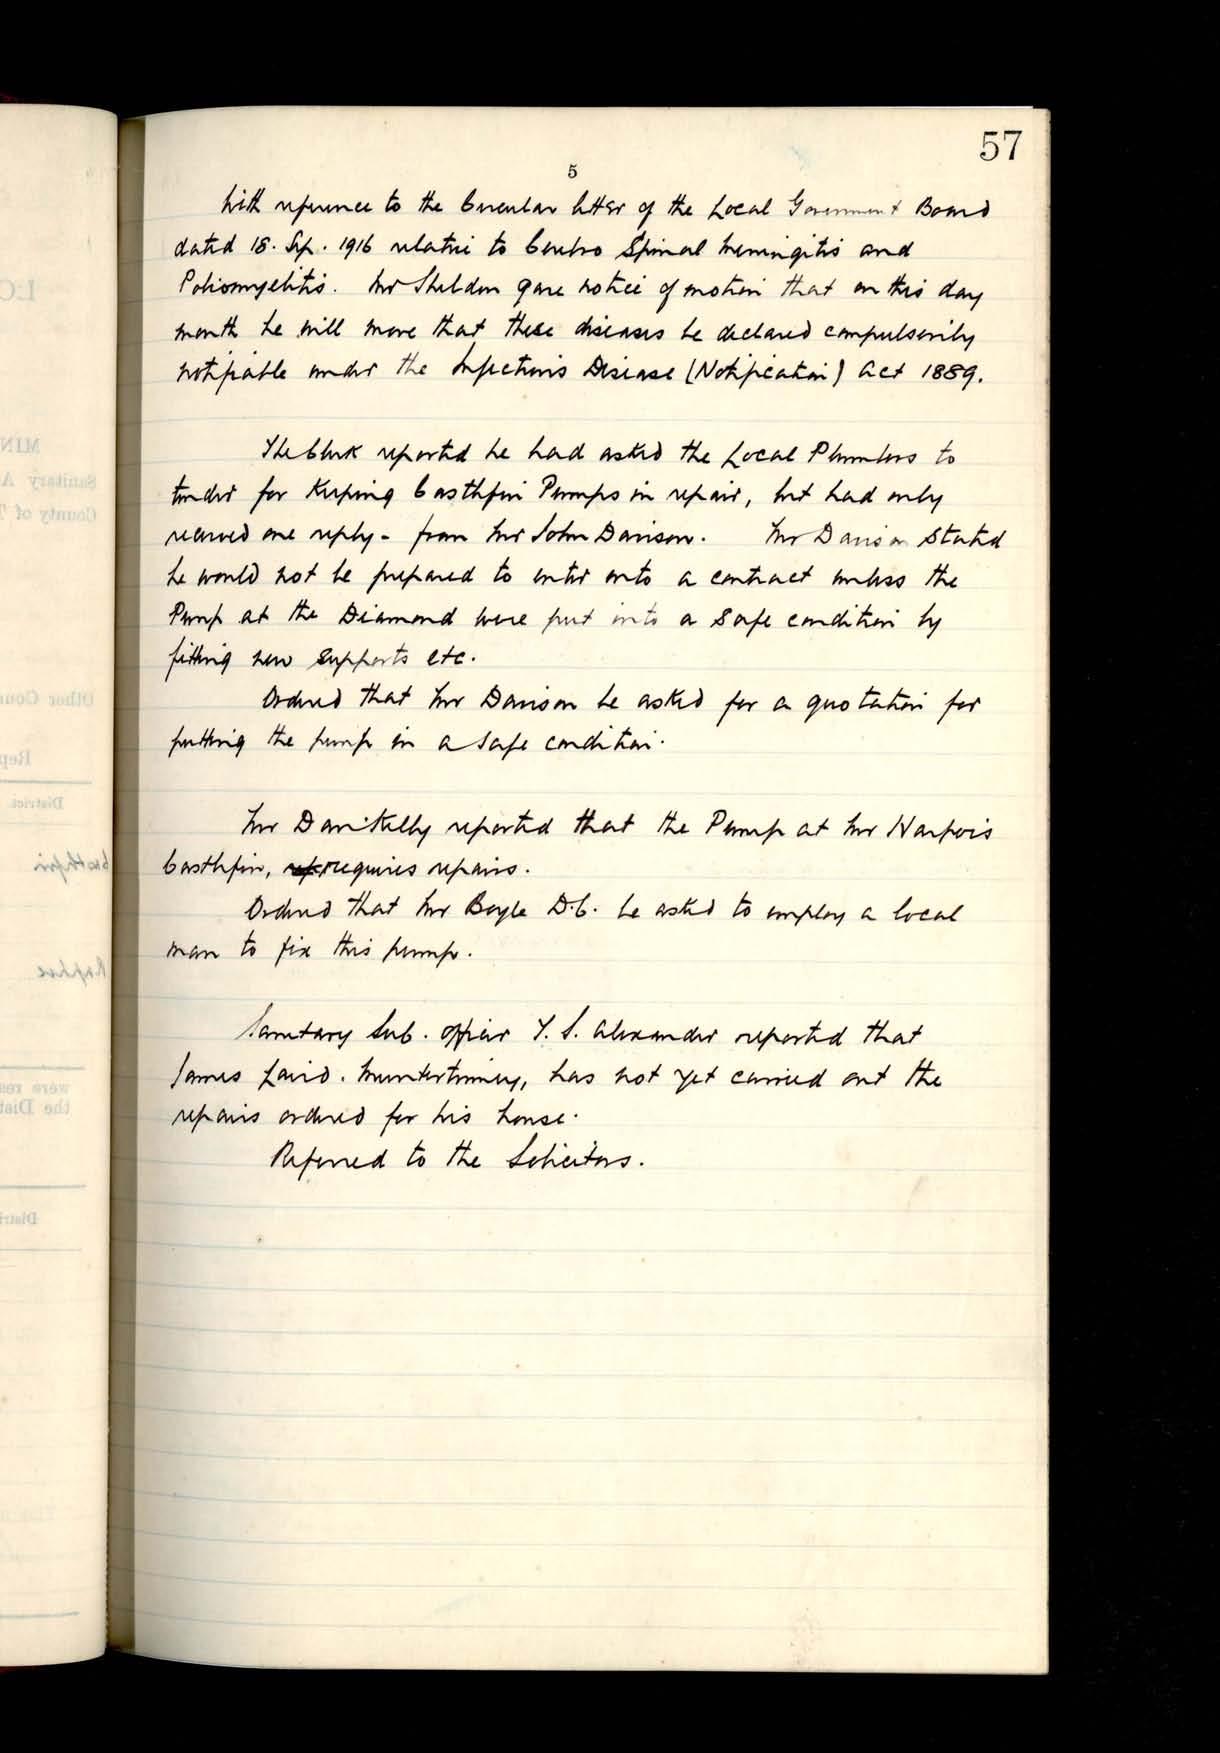 57
5
With reference to the Circular letter of the Local Government Board
dated 18. Sep. 1916 relative to Cerebro Spinal Meningitis and
Poliomyelitis. Mr Sheldon gave notice of motion that on this day
month he will move that these diseases be declared compulsorily
notifiable under the Infectious Disease (Notification) Act 1889.
The Clerk reported he had asked the Local Plumbers to
tender for keeping Castlefin Pumps in repair, but had only
received one reply - from Mr John Davison. Mr Davison stated
he would not be prepared to enter onto a contract unless the
Pump at the Diamond were put into a safe condition by
fitting new supports etc.
Ordered that Mr Davison be asked for a quotation for
putting the pump in a safe condition.
Mr Dan: Kelly reported that the Pump at Mr
Castlefin, requires repairs.
Ordered that Mr Boyle D.C. be asked to employ a local
man to fix this pump.
Sanitary Sub. Officer T. S. Alexander reported that
James Laird. has not yet carried out the
repairs ordered for his house.
Referred to the Solicitors.
LO
MIN
Sanitary A
County of T
Other Coun
Rep
District
Castlefin
Raphoe
were res
the Dist
Distri